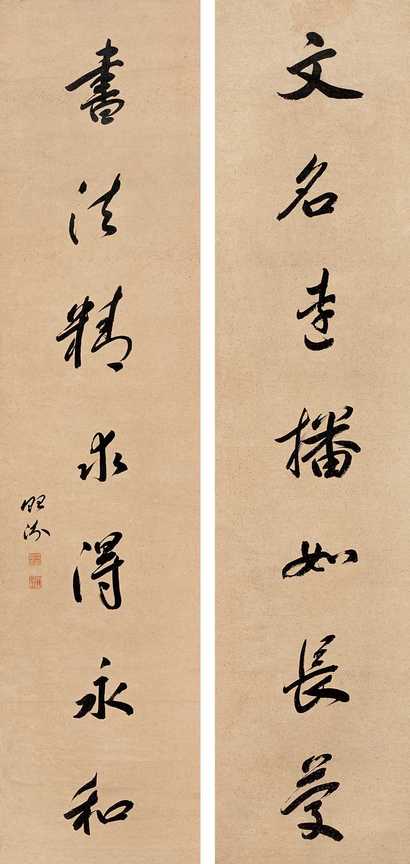 文名遠播如長慶
書法精求得永和